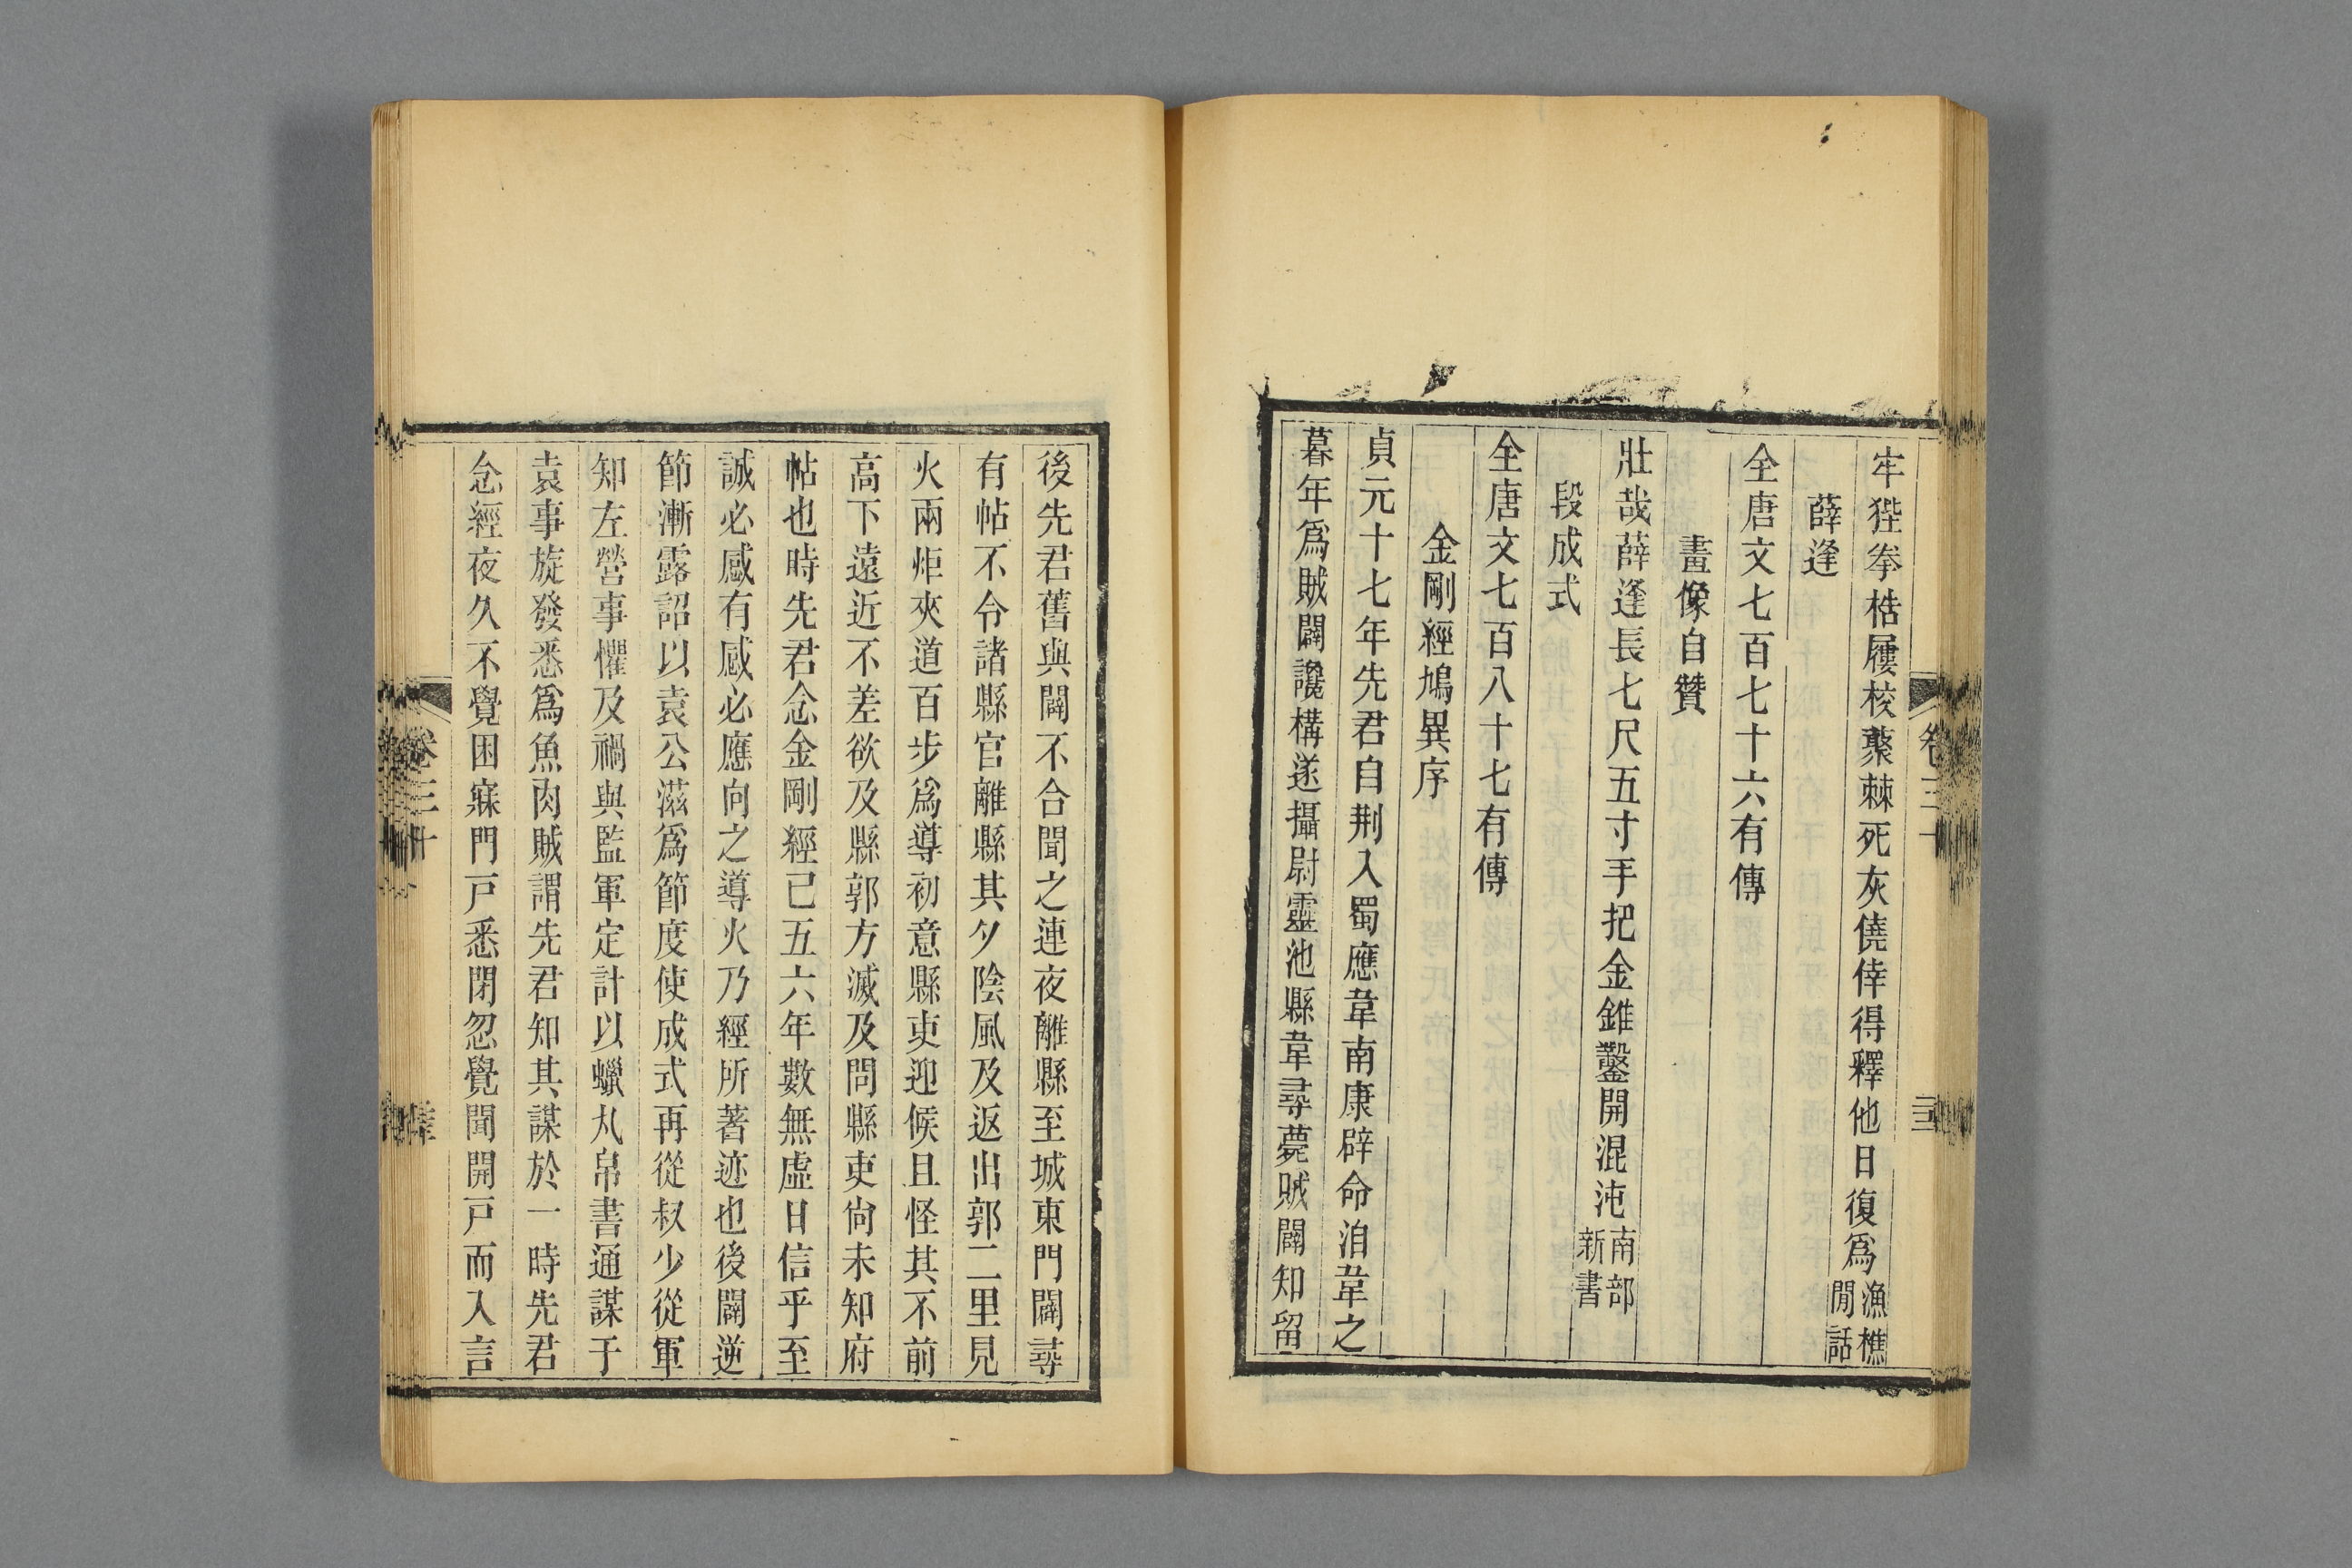 牢狴拳梏屨校藂棘死灰僥倖得釋他日復爲漁樵閒話
薛逢
全唐文七百七十六有傳
畫像自贊
壯哉薛逢長七尺五寸手把金錐鑿開混沌南部新書
段成式
全唐文七百八十七有傳
金剛經鳩異序
貞元十七年先君自荆入蜀應韋南康辟命洎韋之
暮年爲賊闢讒構遂攝尉靈池縣韋尋薨賊闢知留
後先君舊與闢不合聞之連夜離縣至城東門闢尋
有帖不令諸縣官離縣其夕陰風及返出郭二里見
火兩炬夾道百步爲導初意縣吏迎候且怪其不前
高下遠近不差欲及縣郭方滅及問縣吏尙未知府
帖也時先君念金剛經已五六年數無虛日信乎至
誠必感有感必應向之導火乃經所著迹也後闢逆
節漸露詔以袁公滋爲節度使成式再從叔少從軍
知左營事懼及禍與監軍定計以蠟丸帛書通謀于
袁事旋發悉爲魚肉賊謂先君知其謀於一時先君
念經夜久不覺困寐門戸悉閉忽覺聞開戸而入言
卷三十